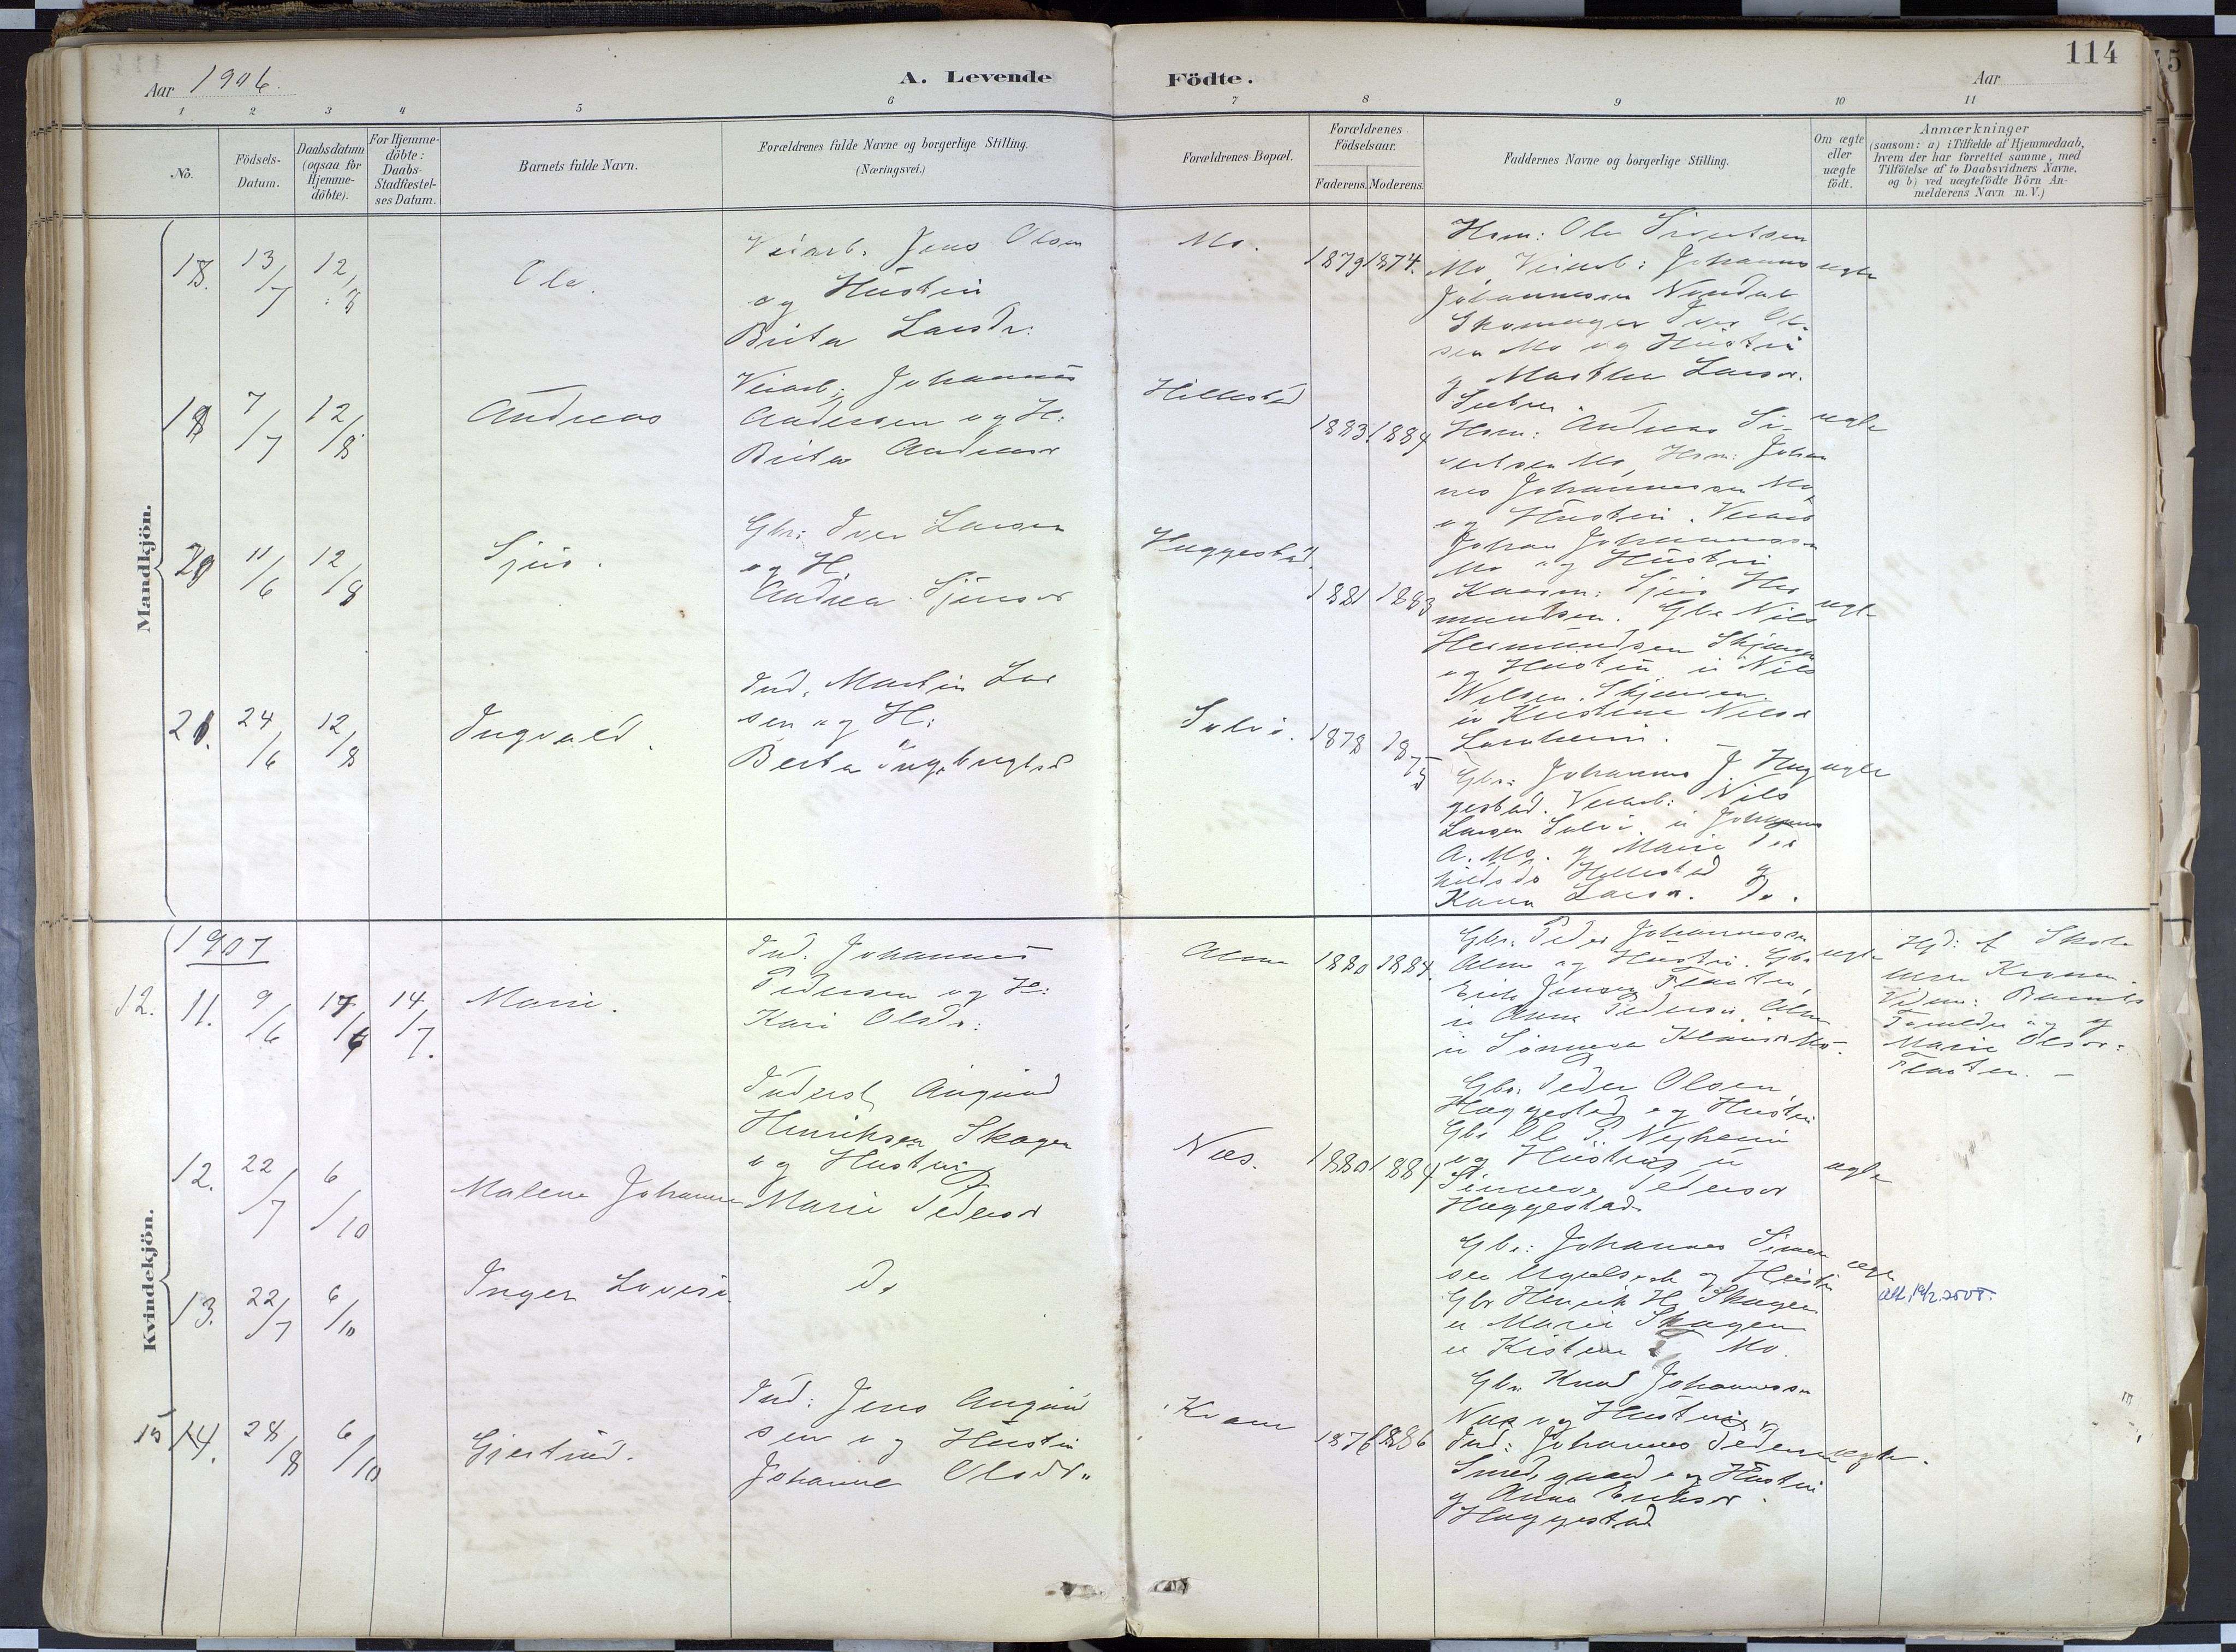 114
Aar 1906.
A. Levende Födte.
Aar
1 2 3 4 5 6 7 8 9 10 11
No.
Födsels-Datum.
Daabsdatum (ogsaa for Hjemme-döbte).
For Hjemme-döbte: Daabs-Stadfæstel-ses Datum.
Barnets fulde Navn.
Forældrenes fulde Navne og borgerlige Stilling.
(Næringsvei.)
Forældrenes Bopæl.
Forældrenes Födselsaar.
Faderens. Moderens.
Faddernes Navne og borgerlige Stilling.
Om ægte eller uægte födt.
Anmærkninger
(saasom: a) i Tilfælde af Hjemmedaab,
hvem der har forrettet samme, med
Tilföielse af to Daabsvidners Navne,
og b) ved uægtefödte Börn An-
melderens Navn m. V.)
Mandkjön.
18. 13/7 12/8
Ole.
Veiarb. Jens Olsen
og Hustru
Brita Larsdr.
Mo.
1879 1874.
Hsm: Ole Sivertsen
Mo, Veiarb: Johannes
Johannessen Nundal
Skomager Iver Ol-
sen Mo og Hustru
og Martha Larsdr.
Sætre.
ægte
19 7/7 12/8
Andreas
Veiarb. Johannes
Andersen og H:
Brita Andersdr
Hillestad
1883. 1884
Hsm: Andreas Si-
vertsen Mo, Hsm: Johan
nes Johannessen Mo,
og Hustru. Veiarb
Johan Johannessen
Mo og Hustru
ægte
20 11/6 12/8
Sjur.
Gbr: Iver Larsen
og H.
Andrea Sjursdr
Hæggestad.
1881 1883
Sjur Her
mundsen. Gbr Nils
Hermundsen Skjerven
og Hustru u Nils
Nilsen. Skjerven.
u Kristine Nilsdr
ægte
21. 24/6 12/8
Ingvald.
Ind. Martin Lar
sen og H:
Berta Ingebrigtsd
Solvi.
1878 1875
Gbr: Johannes J. Hæg
gestad. Veiarb: Nils
Larsen Solvi. u Johannes
A. Mo. og Marie Ter
kildsdr Hillestad og
Kari Larsdr. Do.
ægte
Kvindekjön.
1907
12. 11. 9/6 14/6 14/7.
Marie.
Ind. Johannes
Pedersen og H:
Kari Olsdr:
Alme
1880 1884.
Gbr. Peder Johannessen
Alme og Hustru. Gbr
Erik Jensen Flaaten,
u Anna Pedersdr. Alme
u Sønneva Mo.
ægte
Hjd: af Skole
Vidner: Barnets
Forældre og
Marie Olsdr:
Flaaten. —
12. 22/7 6/10
Malene Johanne
Inderst August
Henriksen Skagen
og Hustru
Marie Pedersdr
Næs.
1880 1884
Gbr. Peder Olsen
Hæggestad og Hustru
Gbr Ole P. Nyheim
og Hustru, u
Sinneva Pedersdr
Hæggestad
ægte
13. 22/7 6/10
Inger Lovise.
Do
Gbr: Johannes Simen
sen og Hustru
Gbr Henrik H. Skagen
u Marie Skagen
u Kristine Mo.
ægte
15 14. 28/8 6/10
Gjertrud.
Ind: Jens August
sen og Hustru
Johanne Olsdr.
Kvam
1876 1886
Gbr Knud Johannessen
Næs og Hustru,
Ind: Johannes Pedersen
og Hustru
og Anna Eriksdr.
Hæggestad
ægte.